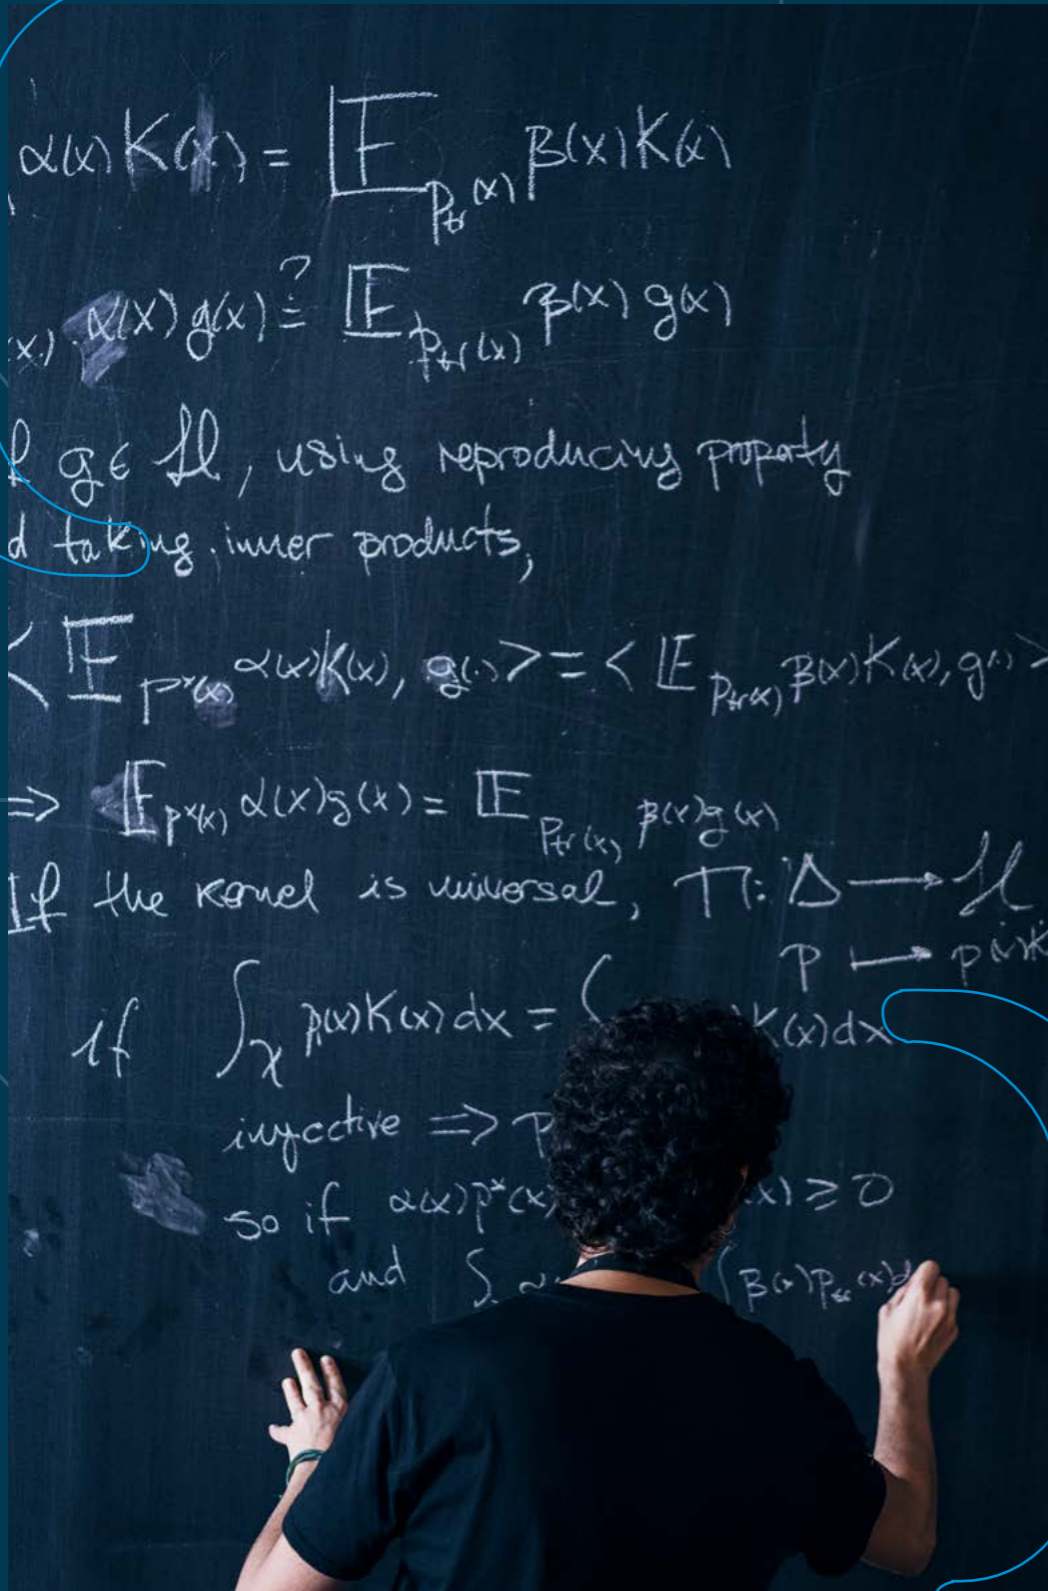 α(x) K(x) = 𝔼_{p_{tr}(x)} β(x) K(x)
(x) α(x) g(x) ≟ 𝔼_{p_{tr}(x)} β(x) g(x)
g ∈ ℋ, using reproducing property
d taking inner products,
< 𝔼_{p^*(x)} α(x) K(x), g(.) > = < 𝔼_{p_{tr}(x)} β(x) K(x), g(.) >
=> 𝔼_{p^*(x)} α(x) g(x) = 𝔼_{p_{tr}(x)} β(x) g(x)
If the kernel is universal, Π: Δ → ℋ
p ↦ p(x)K
if ∫_χ p(x) K(x) dx = ∫ K(x) dx
injective => p
so if α(x) p^*(x) (x) ≥ 0
and ∫ α ∫ β(x) p_{tr}(x) d